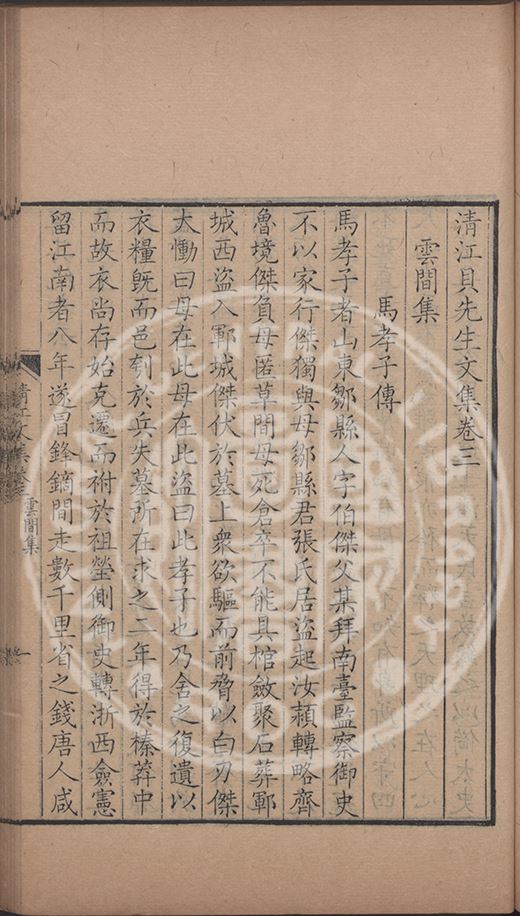 清江貝先生文集卷三
雲間集
馬孝子傳
馬孝子者山東鄒縣人字伯傑父某拜南臺監察御史
不以家行傑獨與母鄒縣君張氏居盜起汝潁轉略齊
魯境傑負母匿草間母死倉卒不能具棺斂聚石葬鄆
城西盜入鄆城傑伏於墓上衆欲驅而前脅以白刃傑
大慟曰母在此母在此盜曰此孝子也乃舍之復遺以
衣糧旣而邑刳於兵失墓所在求之二年得於榛莽中
而故衣尚存始克遷而祔於祖塋側御史轉浙西僉憲
留江南者八年遂冒鋒鏑間走數千里省之錢唐人咸
清江文集卷三
雲間集
一